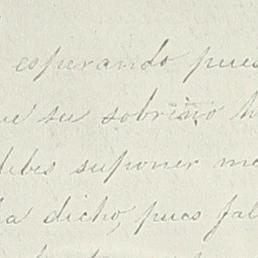 esperando pues
ue su sobrino h
debes suponer me
ha dicho, pues fal